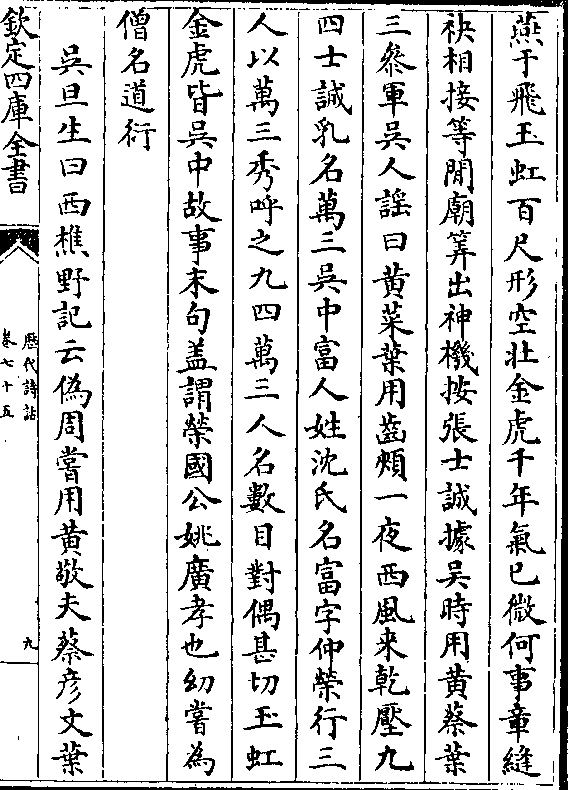 燕于飛玉虹百尺形空壯金虎千年氣已微何事章縫
袂相接等閒廟筭出神機按張士誠據吳時用黄蔡葉
三叅軍吳人謡曰黄菜葉用齒頰一夜西風来乾壓九
四士誠乳名萬三吳中富人姓沈氏名富字仲榮行三
人以萬三秀呼之九四萬三人名數目對偶甚切玉虹
金虎皆吳中故事末句盖謂榮國公姚廣孝也幼嘗為
僧名道衍
吳旦生曰西樵野記云偽周嘗用黄敬夫蔡彦文葉
欽定四庫全書
歴代詩話
卷七十五
九